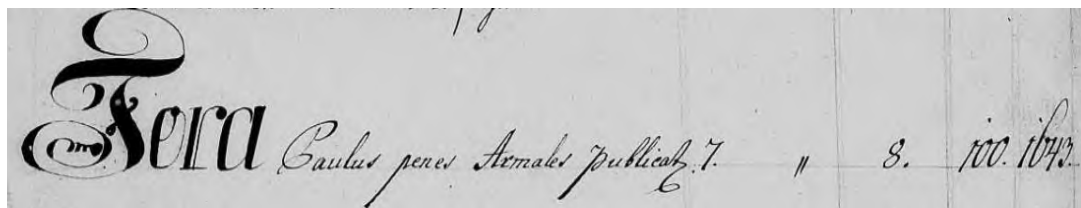 Fora Paulus penes Armales publicat. 7. " 8. 100. 1643.